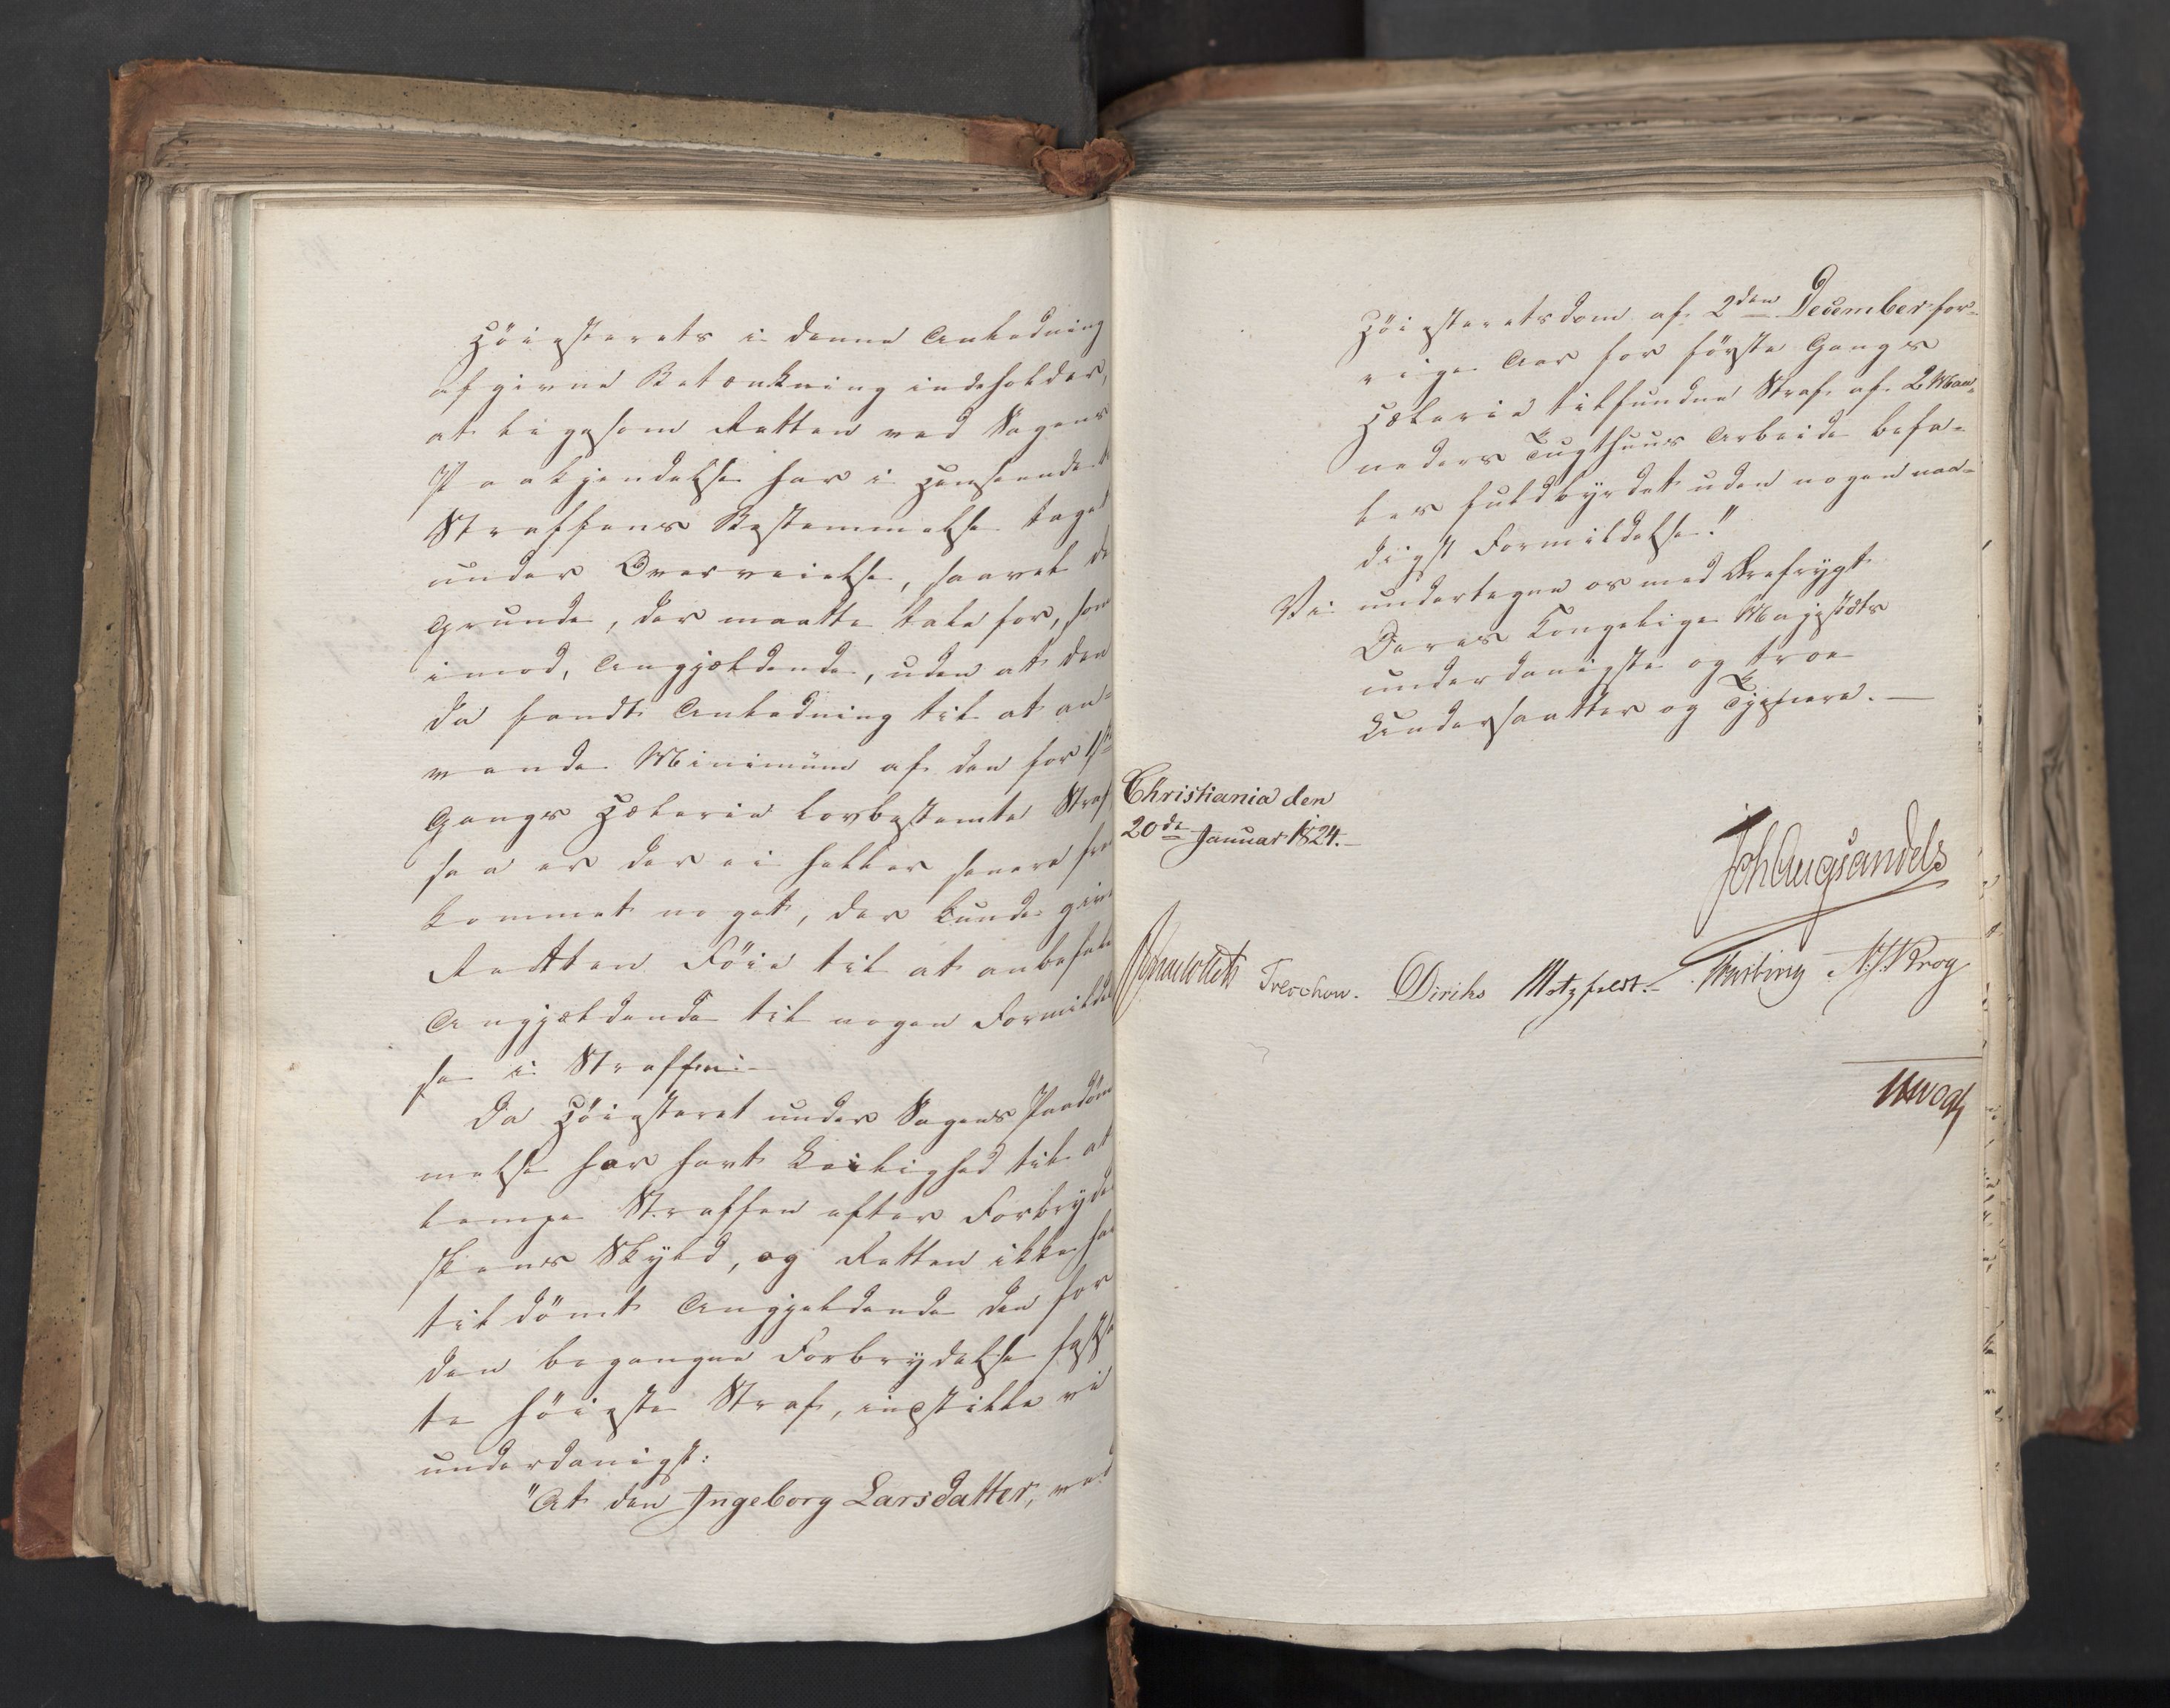 Höiesterets i denne Anledning
afgivne Betænkning indeholder,
at ligesom Retten ved Sagens
Paakjendelse har i Henseende t
Straffens Bestemmelse taget
under Overveielse, saavel de
Grunde, der maatte tale for, som
imod, Angjældende, uden at den
da fandt Anledning til at an-
vende Minimum af den for 1ste
Gangs Hæleri lovbestemte Straf
saa er der ei heller senere frem
kommet noget, der kunde give
Retten Föie til at anbefale
Angjældende til nogen Formildel
se i Straffen.-
Da Höiesteret under Sagens Paadöm
melse har havt Leilighed til at
lempe Straffen efter Forbryde
skens Skyld, og Retten ikke har
tildömt Angjældende den for
den begangne Forbrydelse fastsat
te höieste Straf, indstille vi
underdanigst:
"At den Ingeborg Larsdatter, ved
Höiesteretsdom af 2den December for-
rige Aar for förste Gangs
Hæleri tilfundne Straf af 2 Maa-
neders Tugthuus Arbeide befa-
les fuldbyrdet uden nogen naa-
digst Formildelse."
Vi undertegne os med Ærefrygt
Deres Kongelige Majestæts
underdanigste og troe
Undersaatter og Tjenere.-
Christiania den
20de Januar 1824.-
Joh Aug Sandels
Treschow. Diriks Motzfeldt.- N. J. Krog
Vogt